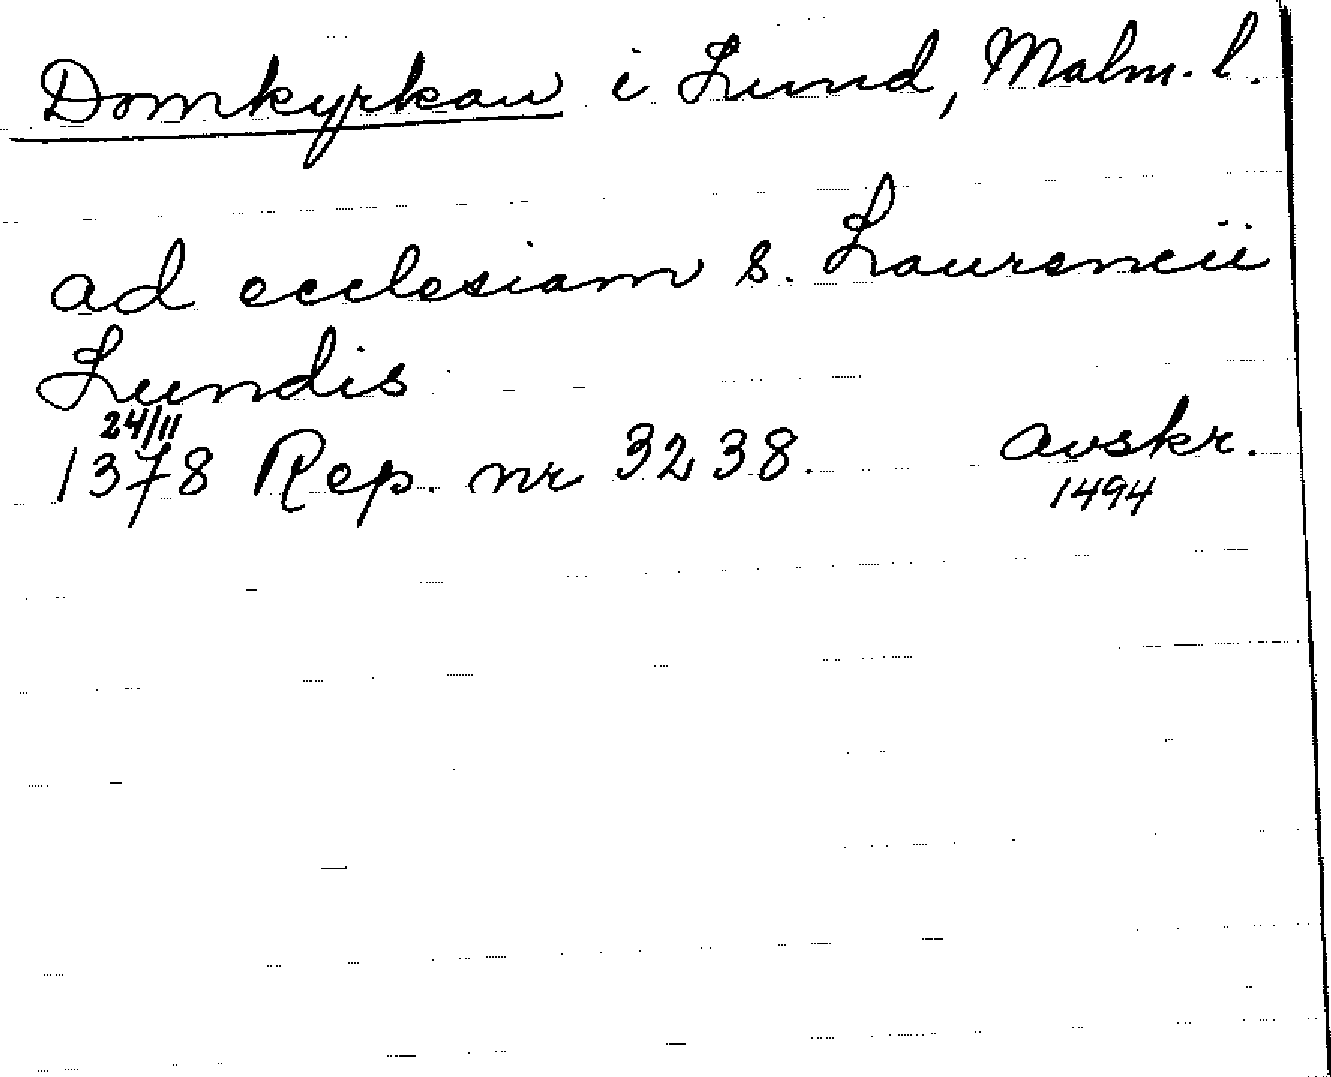 Domkyrkan i Lund, Malm. l.
ad ecclesiam s. Laurencii
Lundis
24/11
1378 Rep. nr 3238. avskr.
1494